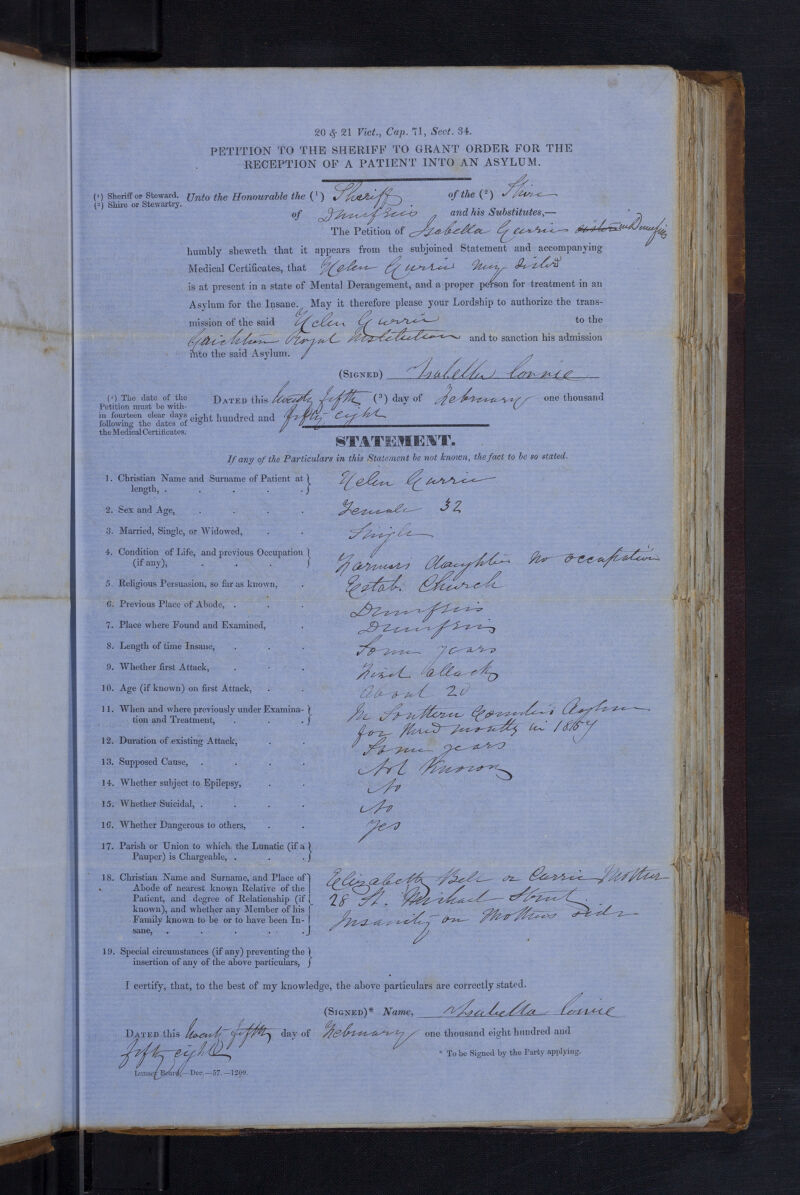 20 & 21 Vict., Cap. 71, Sect. 34.
PETITION TO THE SHERIFF TO GRANT ORDER FOR THE
RECEPTION OF A PATIENT INTO AN ASYLUM.
(¹) Sheriff or Steward.
(²) Shire or Stewartry.
Unto the Honourable the (¹) Sheriff of the (²) Shire
of Dumfries and his Substitutes,—
The Petition of Isabella Currie in Dumfries
humbly sheweth that it appears from the subjoined Statement and accompanying
Medical Certificates, that Helen Currie my Sister
is at present in a state of Mental Derangement, and a proper person for treatment in an
Asylum for the Insane. May it therefore please your Lordship to authorize the trans-
mission of the said Helen Currie to the
Crichton Royal Institution and to sanction his admission
into the said Asylum.
(SIGNED) Isabella Currie
(³) The date of the
Petition must be with-
in fourteen clear days
following the dates of
the Medical Certificates.
DATED this twenty fifth (³) day of February one thousand
eight hundred and fifty eight
STATEMENT.
If any of the Particulars in this Statement be not known, the fact to be so stated.
1. Christian Name and Surname of Patient at
length, . . . . . Helen Currie
2. Sex and Age, . . . . Female 32
3. Married, Single, or Widowed, . . Single
4. Condition of Life, and previous Occupation
(if any), . . . . Farmers daughter no occupation
5. Religious Persuasion, so far as known, . Estab. Church
6. Previous Place of Abode, . . . Dumfries
7. Place where Found and Examined, . Dumfries
8. Length of time Insane, . . . Some years
9. Whether first Attack, . . . First attack
10. Age (if known) on first Attack, . . About 20
11. When and where previously under Examina-
tion and Treatment, . . . In Southern Counties Asylum
for three months in 1857
12. Duration of existing Attack, . . Some years
13. Supposed Cause, . . . . Not Known
14. Whether subject to Epilepsy, . . No
15. Whether Suicidal, . . . . No
16. Whether Dangerous to others, . . Yes
17. Parish or Union to which the Lunatic (if a
Pauper) is Chargeable, . . .
18. Christian Name and Surname, and Place of
Abode of nearest known Relative of the
Patient, and degree of Relationship (if
known), and whether any Member of his
Family known to be or to have been In-
sane, . . . . . .
Elizabeth Bell or Currie Mother
28 St. Michael Street
Insanity on Mothers side
19. Special circumstances (if any) preventing the
insertion of any of the above particulars,
I certify, that, to the best of my knowledge, the above particulars are correctly stated.
(SIGNED)* Name, Isabella Currie
DATED this twenty fifth day of February one thousand eight hundred and
fifty eight
* To be Signed by the Party applying.
Lunacy Board,—Dec.—57.—1200.